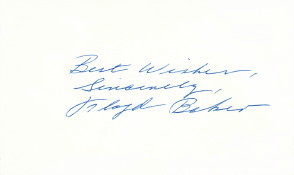 Best Wishes,
Sincerely,
Floyd Baker